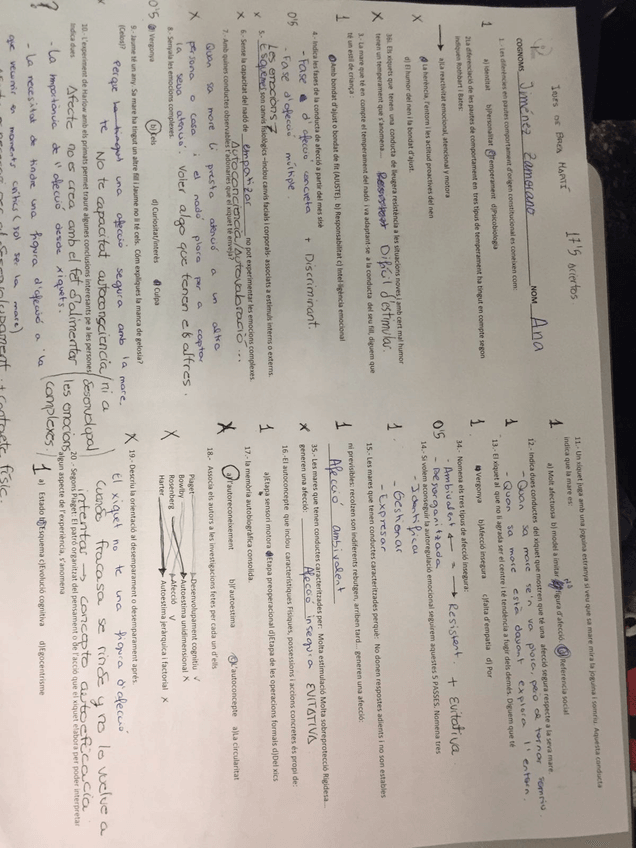 IOES DE BAIX MONTÉ
17'5 aciertos
COGNOMS Jiménez Zamorano NOM Ana
1.- les diferències en pautes comportament d'origen constitucional es coneixen com:
1 a) Identitat b)Personalitat c)Temperament d)Psicobiologia
2. La diferenciació de les pautes de comportament en tres tipus de temperament ha tingut en compte segon
indiquen Rothbart i Bates:
a)La reactivitat emocional, atencional i motora
X La herència, l'entorn i les actitud proactives del nen
d) El humor del nen i la bondat d'ajust.
36. Els xiquets que tenen una conducta de lleugera resistència a les situacions noves i amb cert mal humor
X tenen un temperament que s'anomena... Difícil d'estimular.
3.- La mare que té en compte el temperament del nadó i va adaptant-se a la conducta del seu fill, diguem que
té un estil de criança
1 Amb bondat d'ajust o bondat de fit (AJUSTE). b) Responsabilitat c) Intel·ligència emocional
4.- Indica les fases de la conducta de afecció a partir del mes sisé
0'5 - Fase d'afecció concreta + Discriminant.
- Fase d'afecció múltiple
5.- Les emociones 7
Esquemes són canvis fisiològics -inclou canvis facials i corporals- associats a estímuls interns o externs.
X 6.- Sense la capacitat del nadó de empatizar no pot experimentar les emocions complexes.
Autoconciencia/Autovaloració...
7.- Amb quines conductes observables t'adonaries que el xiquet té enveja?
X Quan sa mare li presta atenció a un altra
persona o cosa i el nadó plora per a captar
la seva atenció. Voler algo que tenen els altres.
8.- Senyala les emocions complexes:
0'5 a) Vergonya b)Zels d) Curiositat/interès e) Culpa
9.- Jaume té un any. Sa mare ha tingut un altre fill i Jaume no li té cels. Com expliques la manca de gelosia?
(Celos)? Perque ha tingut una afecció segura amb la mare.
X No te capacitat autoconsciencia/ni a
10. L'experiment de Harlow amb els primats permet traure algunes conclusions interessants pe a les persones.
Indica dues Afecte no es crea amb el fet d'alimentar
- La importància de l'afecció desde xiquets.
- La necesitat de tindre una figura d'afecció a la
que recurrir en moments crítics (sol ser la mare)
desenvolupat
les emocions
complexes.
? contacte físic
11.- Un xiquet juga amb una joguina estranya si veu que sa mare mira la joguina i somriu. Aquesta conducta
indica que la mare es:
1 a) Molt afectuosa b) model a imitar c) figura d'afecció d)Referencia social
12.- Indica dues conductes del xiquet que mostren que té una afecció segura respecte a la seva mare
- Quan sa mare se'n va plora, pero al tornar somriu.
1 - Quan sa mare està davant explora l'entorn.
13.- El xiquet al que no li agrada ser el centre i té tendència a fugir dels demés. Diguem que té
1 a)Vergonya b)Afecció insegura c)Falta d'empatia d) Por
34. Nomena els tres tipus de afecció insegura:
0'5 - Ambivalent → Resistent + Evitativa.
- Desorganitzada
14.- Si volem aconseguir la autoregulació emocional seguirem aquestes 3 PASSES. Nomena tres
- Identificar
1 - Gestionar
- Expresar
15.- Les mares que tenen conductes caracteritzades perquè: No donen respostes adients i no son estables
ni previsibles: recolzen son indiferents rebutgen, arriben tard... generen una afecció:
1 Afecció ambivalent
35.- Les mares que tenen conductes caracteritzades per: Molta estimulació Molta sobreprotecció Rigidesa...
X generen una afecció: Afecció insegura EVITATIVA.
16.-El autoconcepte que inclou característiques Físiques, possessions i accions concretes és propi de:
1 a)Etapa sensori motora b)Etapa preoperacional c)Etapa de les operacions formals d)Del xics
17.- la memòria autobiogràfica consolida.
X a)l'autoreconeixement b)l'autoestima c)L'autoconcepte d)La circularitat
18.- Associa els autors a les investigacions fetes per cada un d'ells
X Piaget Desenvolupament cognitiu V
Bowlby Autoestima unidimensional X
Rosenberg Afecció V
Harter Autoestima jeràrquica i factorial X
19.- Descriu la orientació al desemparament o desemparament aprés.
X El xiquet no te una figura d'afecció
Cuando fracasa se rinde y no lo vuelve a
intentar → concepto autoeficacia
20.- Segons Piaget: El patró organitzat del pensament o de l'acció que el xiquet elabora per poder interpretar
algun aspecte de l'experiència, s'anomena
1 a) Estadi b)Esquema c)Evolució cognitiva d)Egocentrisme